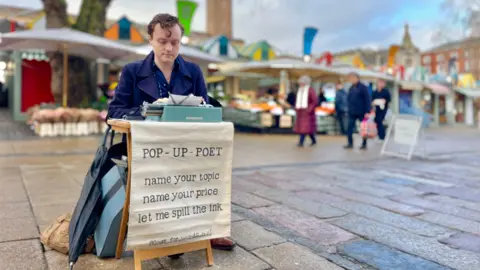 POP-UP-POET
name your topic
name your price
let me spill the ink